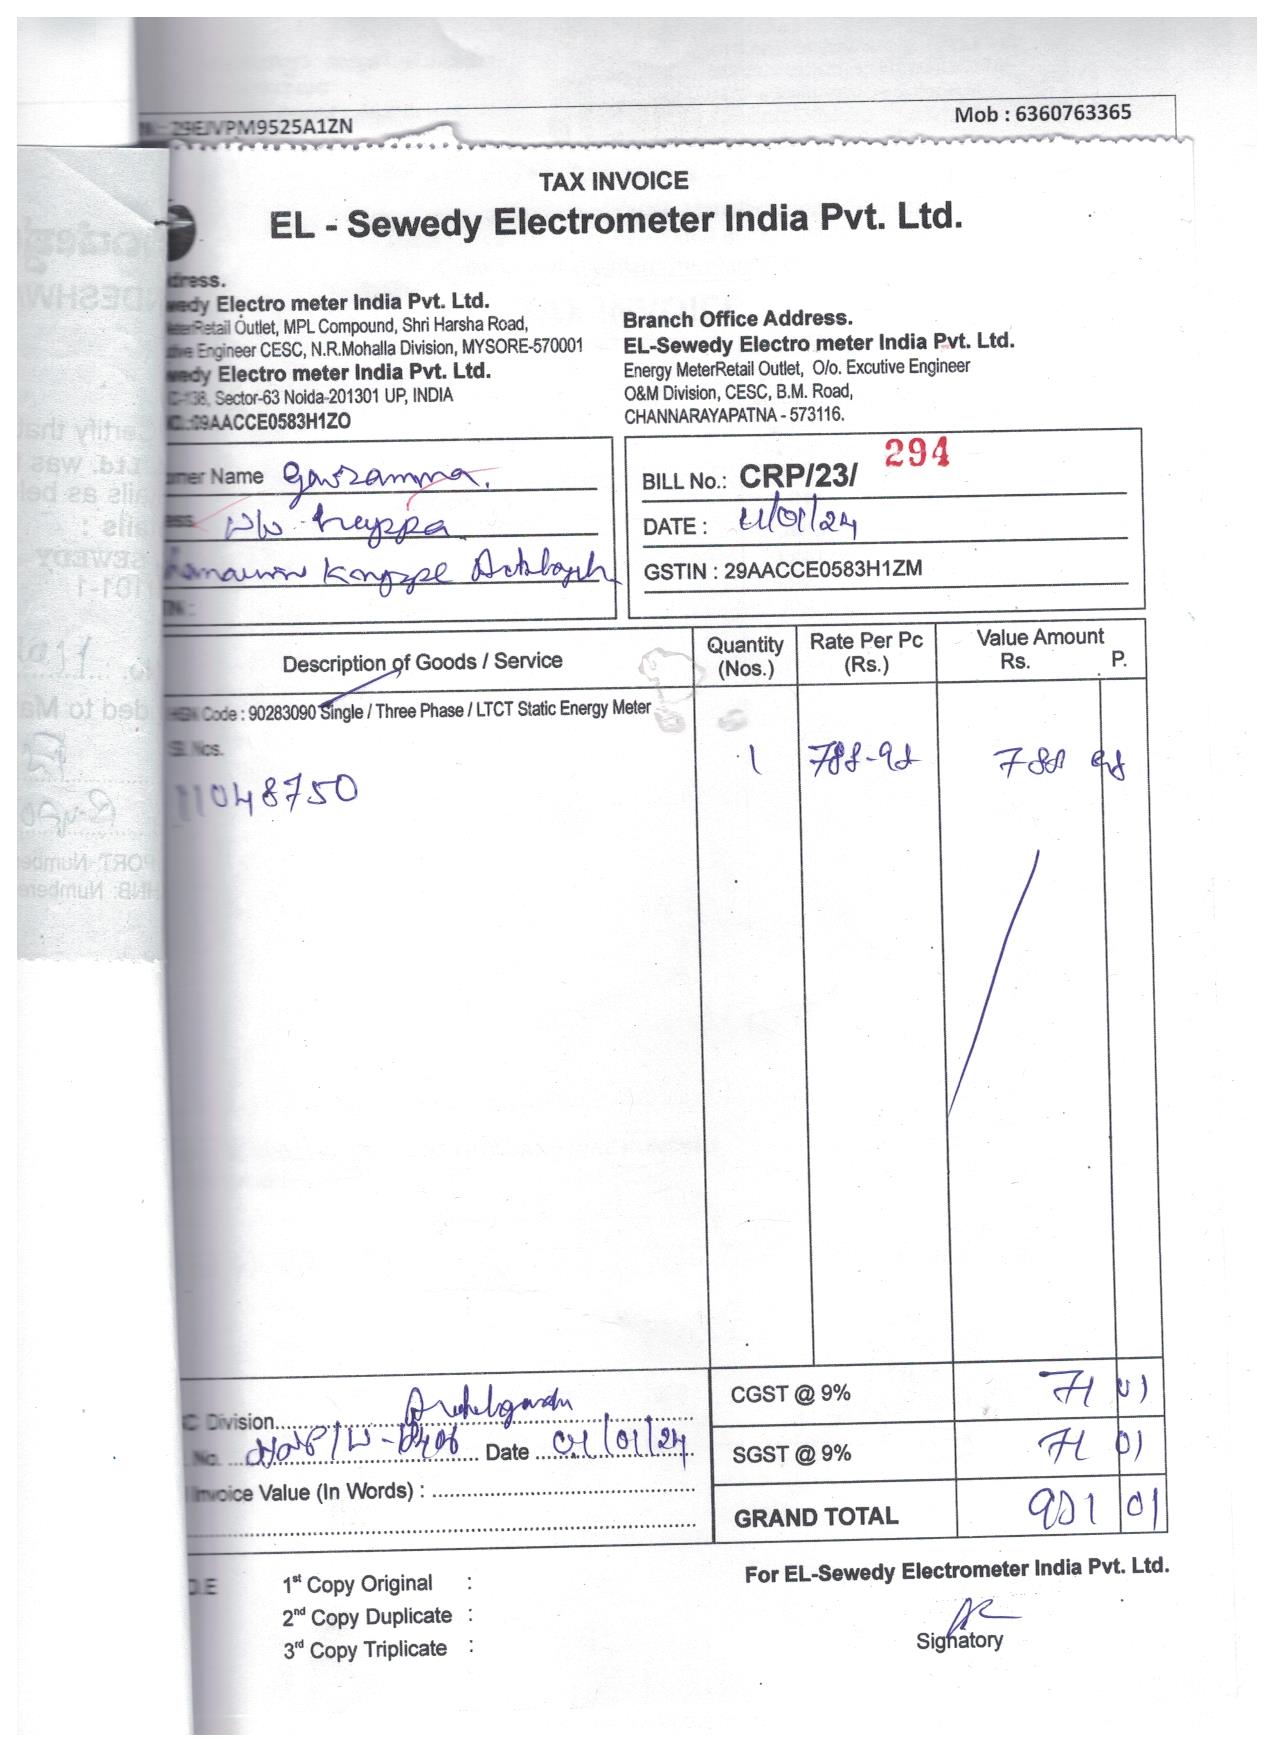 29EJVPM9525A1ZN
Mob : 6360763365
TAX INVOICE
EL - Sewedy Electrometer India Pvt. Ltd.
dress.
wedy Electro meter India Pvt. Ltd.
eterRetail Outlet, MPL Compound, Shri Harsha Road,
Engineer CESC, N.R.Mohalla Division, MYSORE-570001
wedy Electro meter India Pvt. Ltd.
C-138, Sector-63 Noida-201301 UP, INDIA
29AACCE0583H1ZO
Branch Office Address.
EL-Sewedy Electro meter India Pvt. Ltd.
Energy MeterRetail Outlet, O/o. Excutive Engineer
O&M Division, CESC, B.M. Road,
CHANNARAYAPATNA - 573116.
omer Name Gowramma.
ess
BILL No.: CRP/23/ 294
DATE : 01/01/24
GSTIN : 29AACCE0583H1ZM
Description of Goods / Service
Quantity (Nos.)
Rate Per Pc (Rs.)
Value Amount Rs. P.
HSN Code : 90283090 Single / Three Phase / LTCT Static Energy Meter
Sl. Nos.
11048750
1 788-98 788 98
C Division
No. Date 01/01/24
Invoice Value (In Words) :
CGST @ 9% 71 01
SGST @ 9% 71 01
GRAND TOTAL 931 01
1st Copy Original :
2nd Copy Duplicate :
3rd Copy Triplicate :
For EL-Sewedy Electrometer India Pvt. Ltd.
Signatory